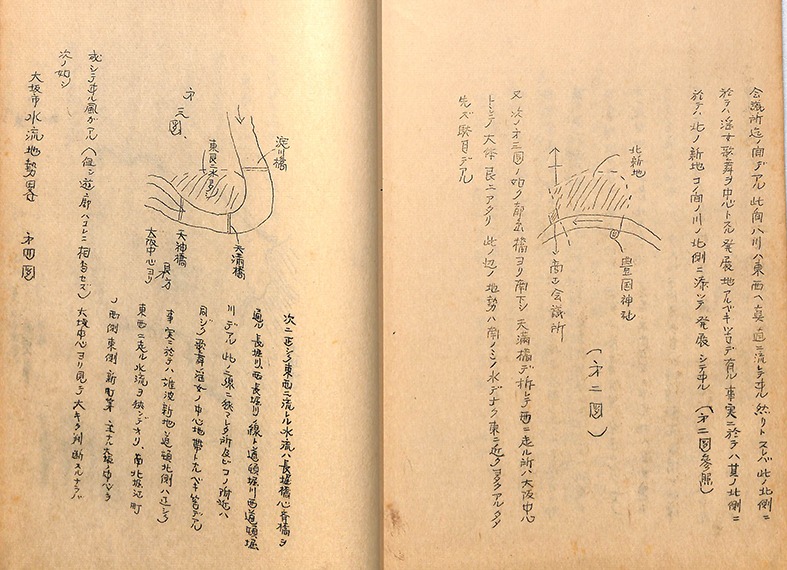 会議所迄ノ間デアル 此間ハ川ハ東西ヘ真直ニ流レテヰル 然リトスレバ此ノ北側ニ
於テハ淫女歌舞ヲ中心トスル発展地アルベキ筈デ有ル 事実ニ於テハ其ノ北側ニ
於テハ北ノ新地 コノ間ノ川ノ北側ニ添ツテ発展シテヰル (才二図参照)
北新地
豊国神社
商工会議所
(才二図)
又次ノ才三図ノ如ク 橋ヨリ南下シ 天満橋デ折レテ西ニ走ル所ハ大阪中心
トシテ大体艮ニアタリ 此ノ辺ノ地勢ハ南ノミノ水デナク東ニ近ク
先ズ駄目デアル
淀川橋
才三図、
東艮ニ水多シ
天満橋
天神橋
大阪中心ヨリ
艮方
次ニ正シク東西ニ流レル水流ハ長堀橋心斉橋ヲ
通ル長堀川、西長堀川ノ線ト道頓堀川西道頓堀
川デアル 此ノ二線ニ狭マレタ所及ビコノ附近ハ
同ジク歌舞淫女ノ中心地帯トスベキ筈デアル
事実ニ於テハ難波新地、道頓北側ハ正シク
東西ニ走ル水流ヲ狭ンデヰリ、南北堀江町
ノ西側東側新町等 主ナ大阪ノ中心ヲ
成シテヰル風ガアル (但シ遊廓ハコレニ相当セズ) 大坂中心ヨリ見テ大キク判断スルナラバ
次ノ如シ
大坂市水流地勢略 才四図